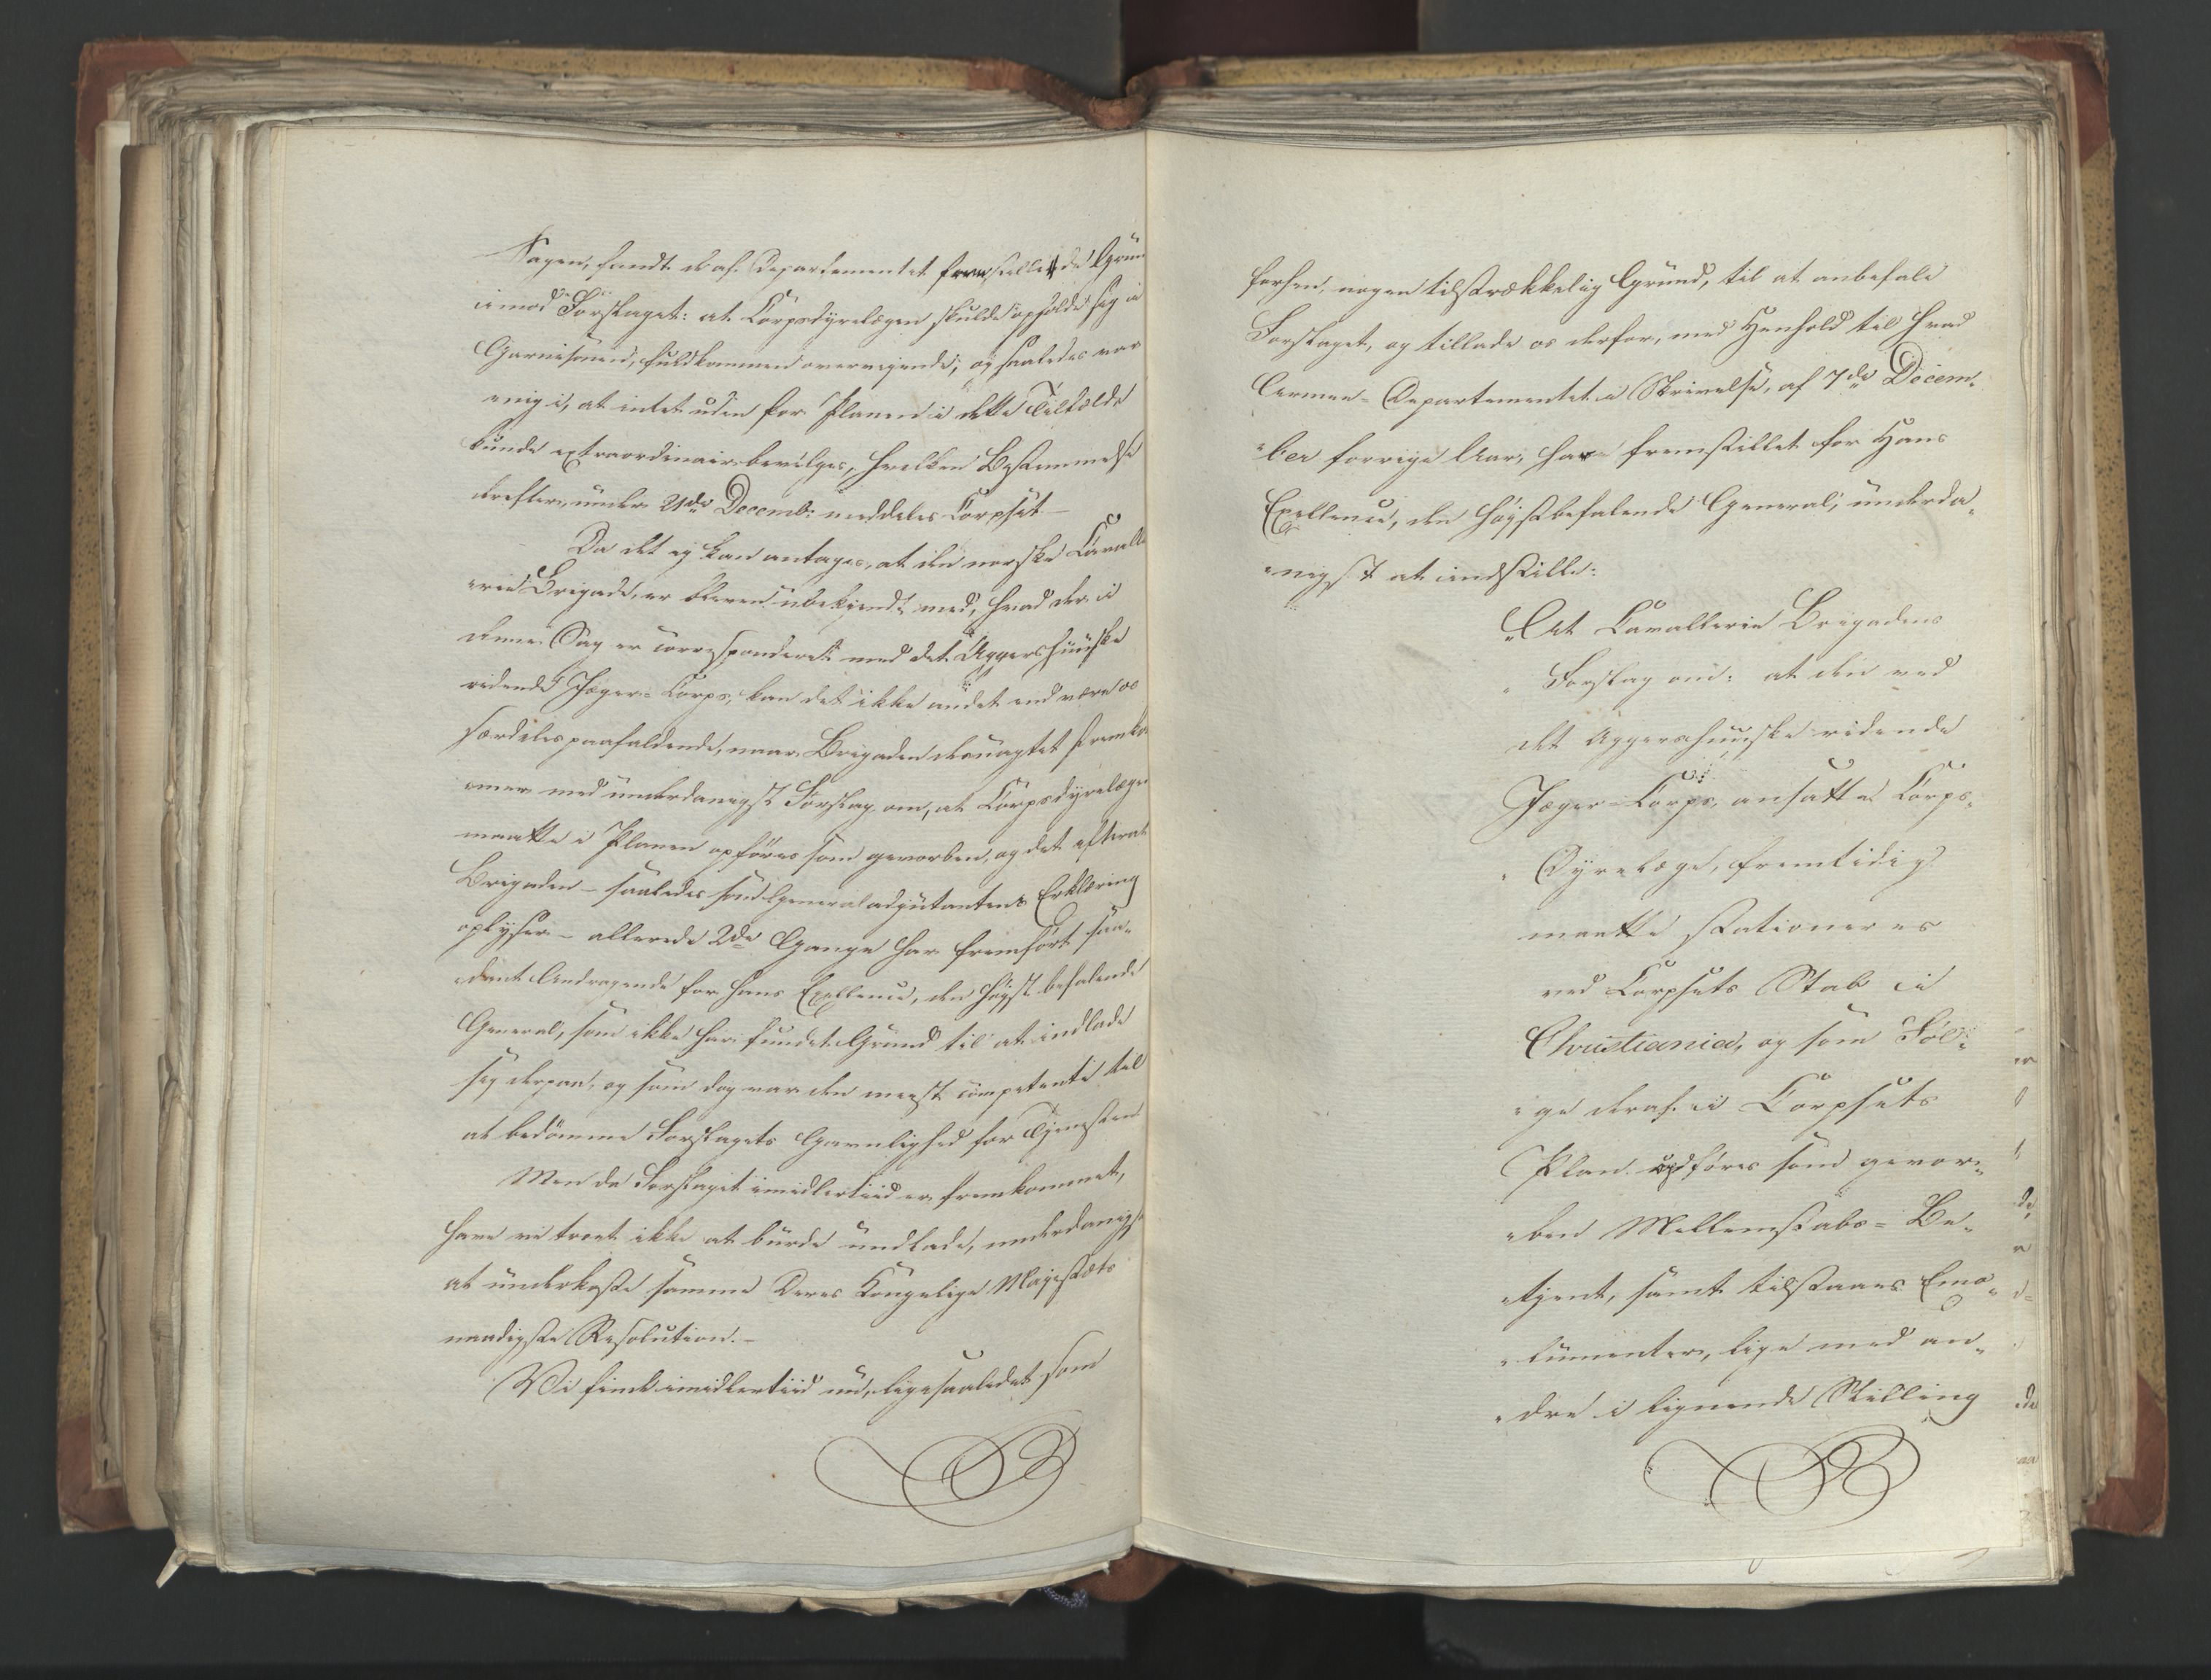 Sagen, fandt de af Departementet fremstillede Grun
imod Forslaget: at Corpsdyrelægen skulde opholde sig i
Garnisonen, fuldkommen overveiende; og saaledes var
enig i, at intet uden for Planen i dette Tilfælde
kunde extraordinair bevilges, hvilken Bestemmelse
derefter, under 21de Decemb: meddeles Corpset.-
Da det ej kan antages, at den norske Cavall
erie Brigade, er bleven ubekjendt med, hvad der i
denne Sag er correspondert med det Aggershuuske
ridende Jæger-Corps, kan det ikke andet end være os
særdeles paafaldende, naar Brigaden desuagtet fremko
mmer med underdanigst Forslag om, at Corpsdyrelægen
maatte i Planen opføres som gevorben, og det efterat
Brigaden - saaledes som Generaladjutantens Erklæring
oplyser - allerede 2de Gange har fremført saa-
dant Andragende for hans Exellence, den høyst befalende
General, som ikke har fundet Grund til at indlade
sig derpaa, og som dog var den meest competente til
at bedømme Forslagets Gavnlighed for Tjenesten
Men da Forslaget imidlertiid er fremkommet,
have vi troet ikke at burde undlade, underdanigst
at underkaste samme Deres Kongelige Majestæts
naadigste Resolution.-
Vi finde imidlertiid nu, ligesaalidet som
forhen, nogen tilstrækkelig Grund, til at anbefale
Forslaget, og tillade os derfor, med Henhold til hvad
Armee-Departementet i Skrivelse, af 7de Decem-
ber forrige Aar, har fremstillet for Hans
Exellence, den høystbefalende General, underda-
nigst at indstille:
"At Cavallerie Brigadens
" Forslag om: at den ved
det Aggershuuske ridende
Jæger-Corps, ansatte Corps-
" Dyrelæge, fremtidigt
maatte stationeres
ved Corpsets Stab i
Christiania, og som Føl-
ge deraf i Corpsets
Plan opføres som gevor-
ben Mellemstabs-Be-
tjent, samt tilstaaes Emo-
lumenter, lige med an-
dre i lignende Stilling